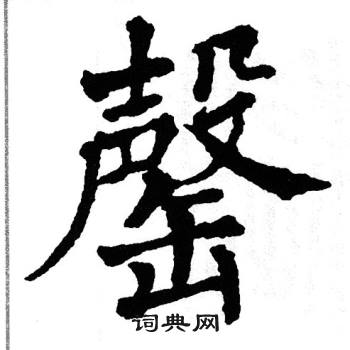 罄
词典网